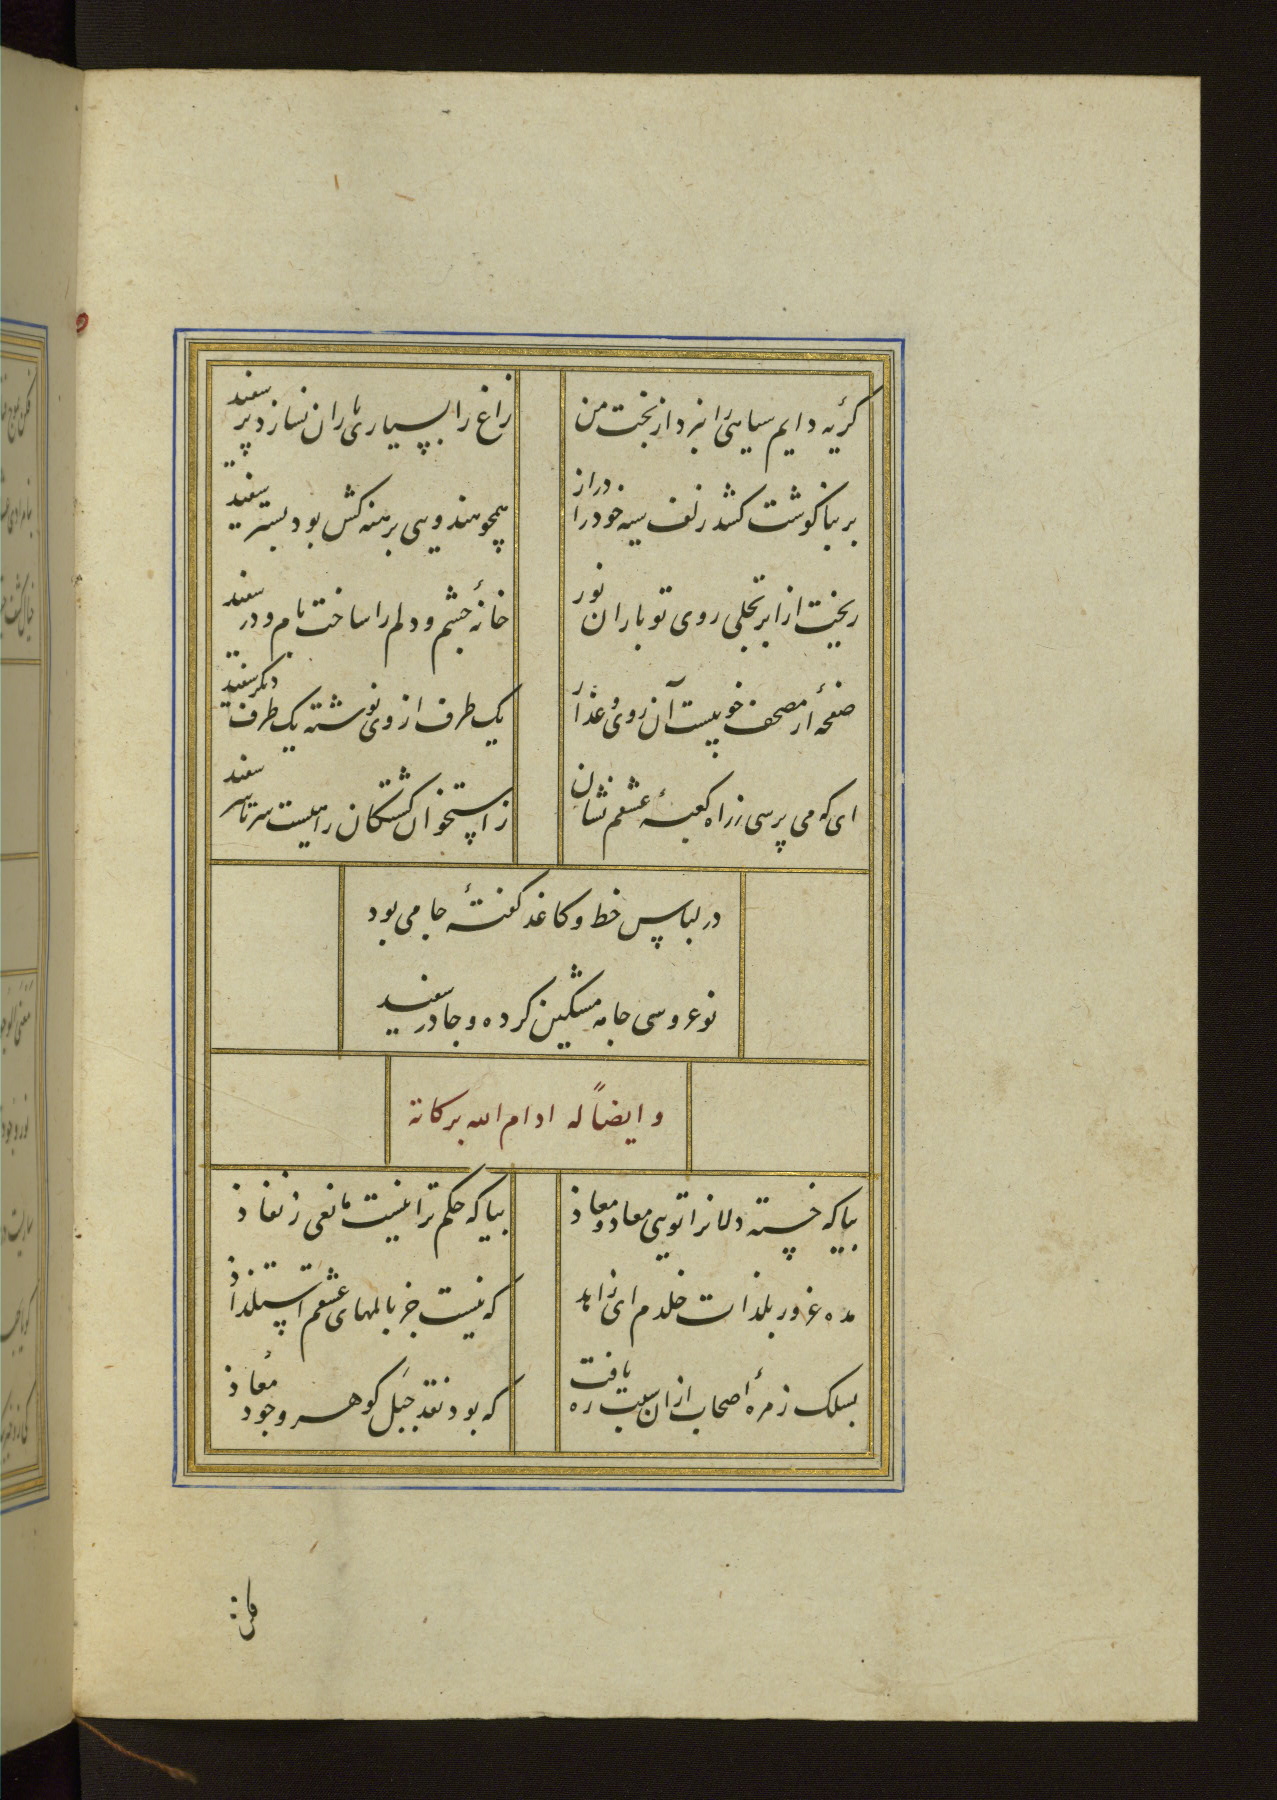 گریه دایم سیاهی را نبرد از بخت من
زاغ را بسیاری باران نسازد پر سفید
بر بناگوشت کشد زلف سیه خود را دراز
همچو هندویی برهنه کش بود بستر سفید
ریخت از ابر تجلی روی تو باران نور
خانهٔ چشم و دلم را ساخت بام و در سفید
صفحهٔ از مصحف خوبیست آن روی و عذار
یک طرف از وی نوشته یک طرف دیگر سفید
ای که می پرسی ز راه کعبهٔ عشقم نشان
ز استخوان کشتگان راهیست سر تا سر سفید
در لباس خط و کاغذ گفتهٔ جامی بود
نو عروسی جامه مشکین کرده و چادر سفید
و ایضاً له ادام الله برکاته
بیا که خسته دلانرا تویی معاد و معاذ
بیا که حکم ترا نیست مانعی ز نفاذ
مده غرور بلذات خلدم ای زاهد
که نیست جز بالمهای عشقم استلذاذ
بسلک زمرهٔ اصحاب ازان سبب ره یافت
که بود نقد جبل گوهر وجود معاذ